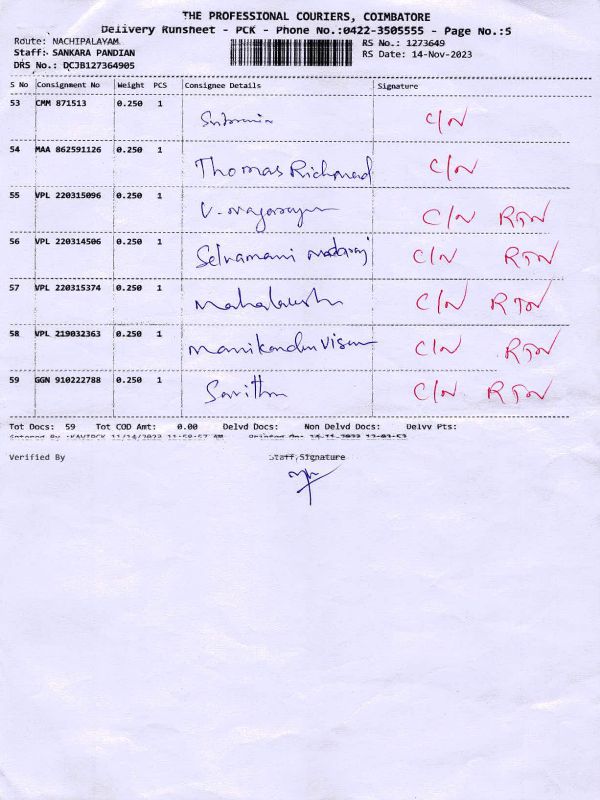 THE PROFESSIONAL COURIERS, COIMBATORE
Delivery Runsheet - PCK - Phone No.:0422-3505555 - Page No.:5
Route: NACHIPALAYAM RS No.: 1273649
Staff: SANKARA PANDIAN RS Date: 14-Nov-2023
DRS No.: DCJB127364905
S No Consignment No Weight PCS Consignee Details Signature
53 CMM 871513 0.250 1 C/N
54 MAA 862591126 0.250 1 Thomas Richmad C/N
55 VPL 220315096 0.250 1 C/N RTN
56 VPL 220314506 0.250 1 Selvamani Nadaraj C/N RTN
57 VPL 220315374 0.250 1 Mahalakshmi C/N RTN
58 VPL 219032363 0.250 1 Manikandan C/N RTN
59 GGN 910222788 0.250 1 Savitha C/N RTN
Tot Docs: 59 Tot COD Amt: 0.00 Delvd Docs: Non Delvd Docs: Delvv Pts:
Entered By :KAVIPCK 11/14/2023 11:58:57 AM Printed On: 14-11-2023 12:03:53
Verified By Staff Signature